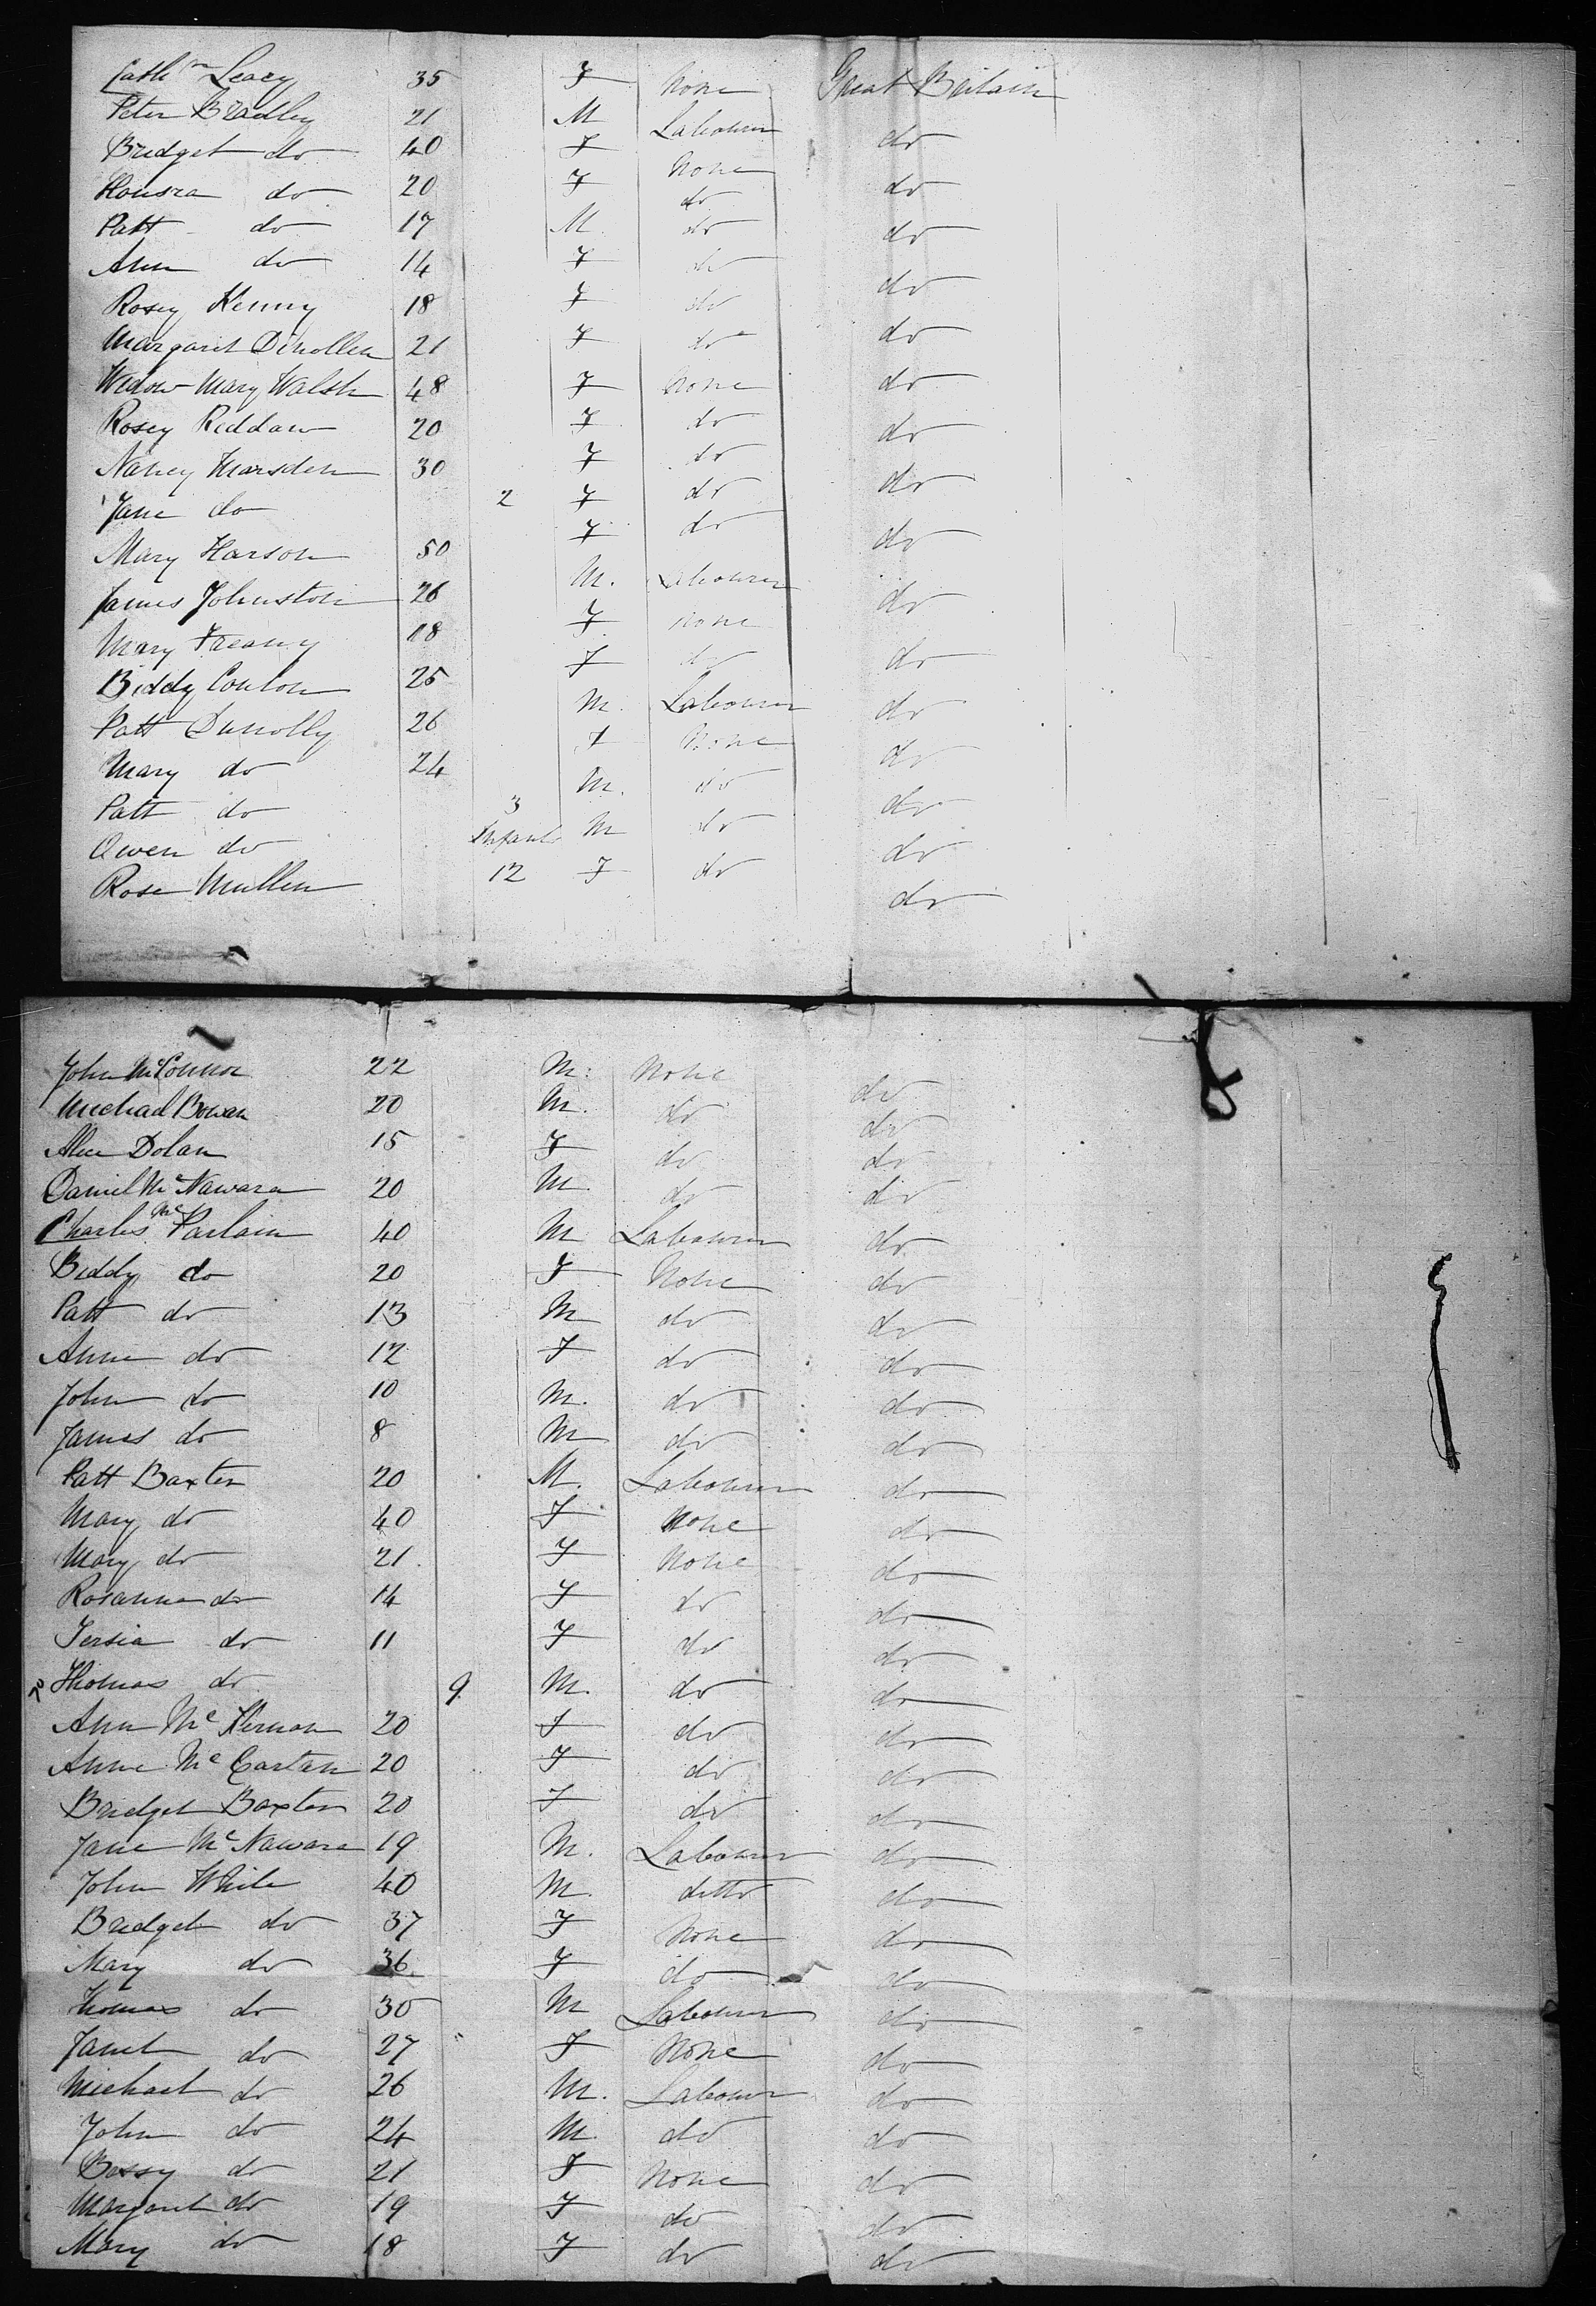 Cathn Leacy 35 F None Great Britain
Peter Bradley 21 M Labourer do
Bridget do 40 F None do
Honora do 20 F do do
Patt do 17 M do do
Ann do 14 F do do
Rosey Kenny 18 F do do
Margaret Dinollen 21 F do do
Widow Mary Walsh 48 F None do
Rosey Reddaw 20 F do do
Nancy Marsden 30 F do do
Jane do 2 F do do
Mary Harson 50 F do do
James Johnston 26 M. Labourer do
Mary Treany 18 F None do
Biddy Conlon 25 F do do
Patt Dunolly 26 M. Labourer do
Mary do 24 F None do
Patt do 3 M. do do
Owen do Infant M do do
Rose Mullen 12 F do do
John McConnor 22 M. None do
Michael Bowen 20 M. do do
Alice Dolan 15 F do do
Daniel McNawara 20 M do do
Charles McParlain 40 M Labourer do
Biddy do 20 F None do
Patt do 13 M do do
Anne do 12 F do do
John do 10 M. do do
James do 8 M do do
Patt Baxter 20 M. Labourer do
Mary do 40 F None do
Mary do 21 F None do
Rosanna do 14 F do do
Tersia do 11 F do do
Thomas do 9 M. do do
Ann Mc Kernon 20 F do do
Anne Mc Cartan 20 F do do
Bridget Baxter 20 F do do
Jane Mc Nawara 19 M. Labourer do
John White 40 M. ditto do
Bridget do 37 F None do
Mary do 36 F do do
Thomas do 30 M Labourer do
Janet do 27 F None do
Michael do 26 M. Labourer do
John do 24 M. do do
Bessy do 21 F None do
Margaret do 19 F do do
Mary do 18 F do do